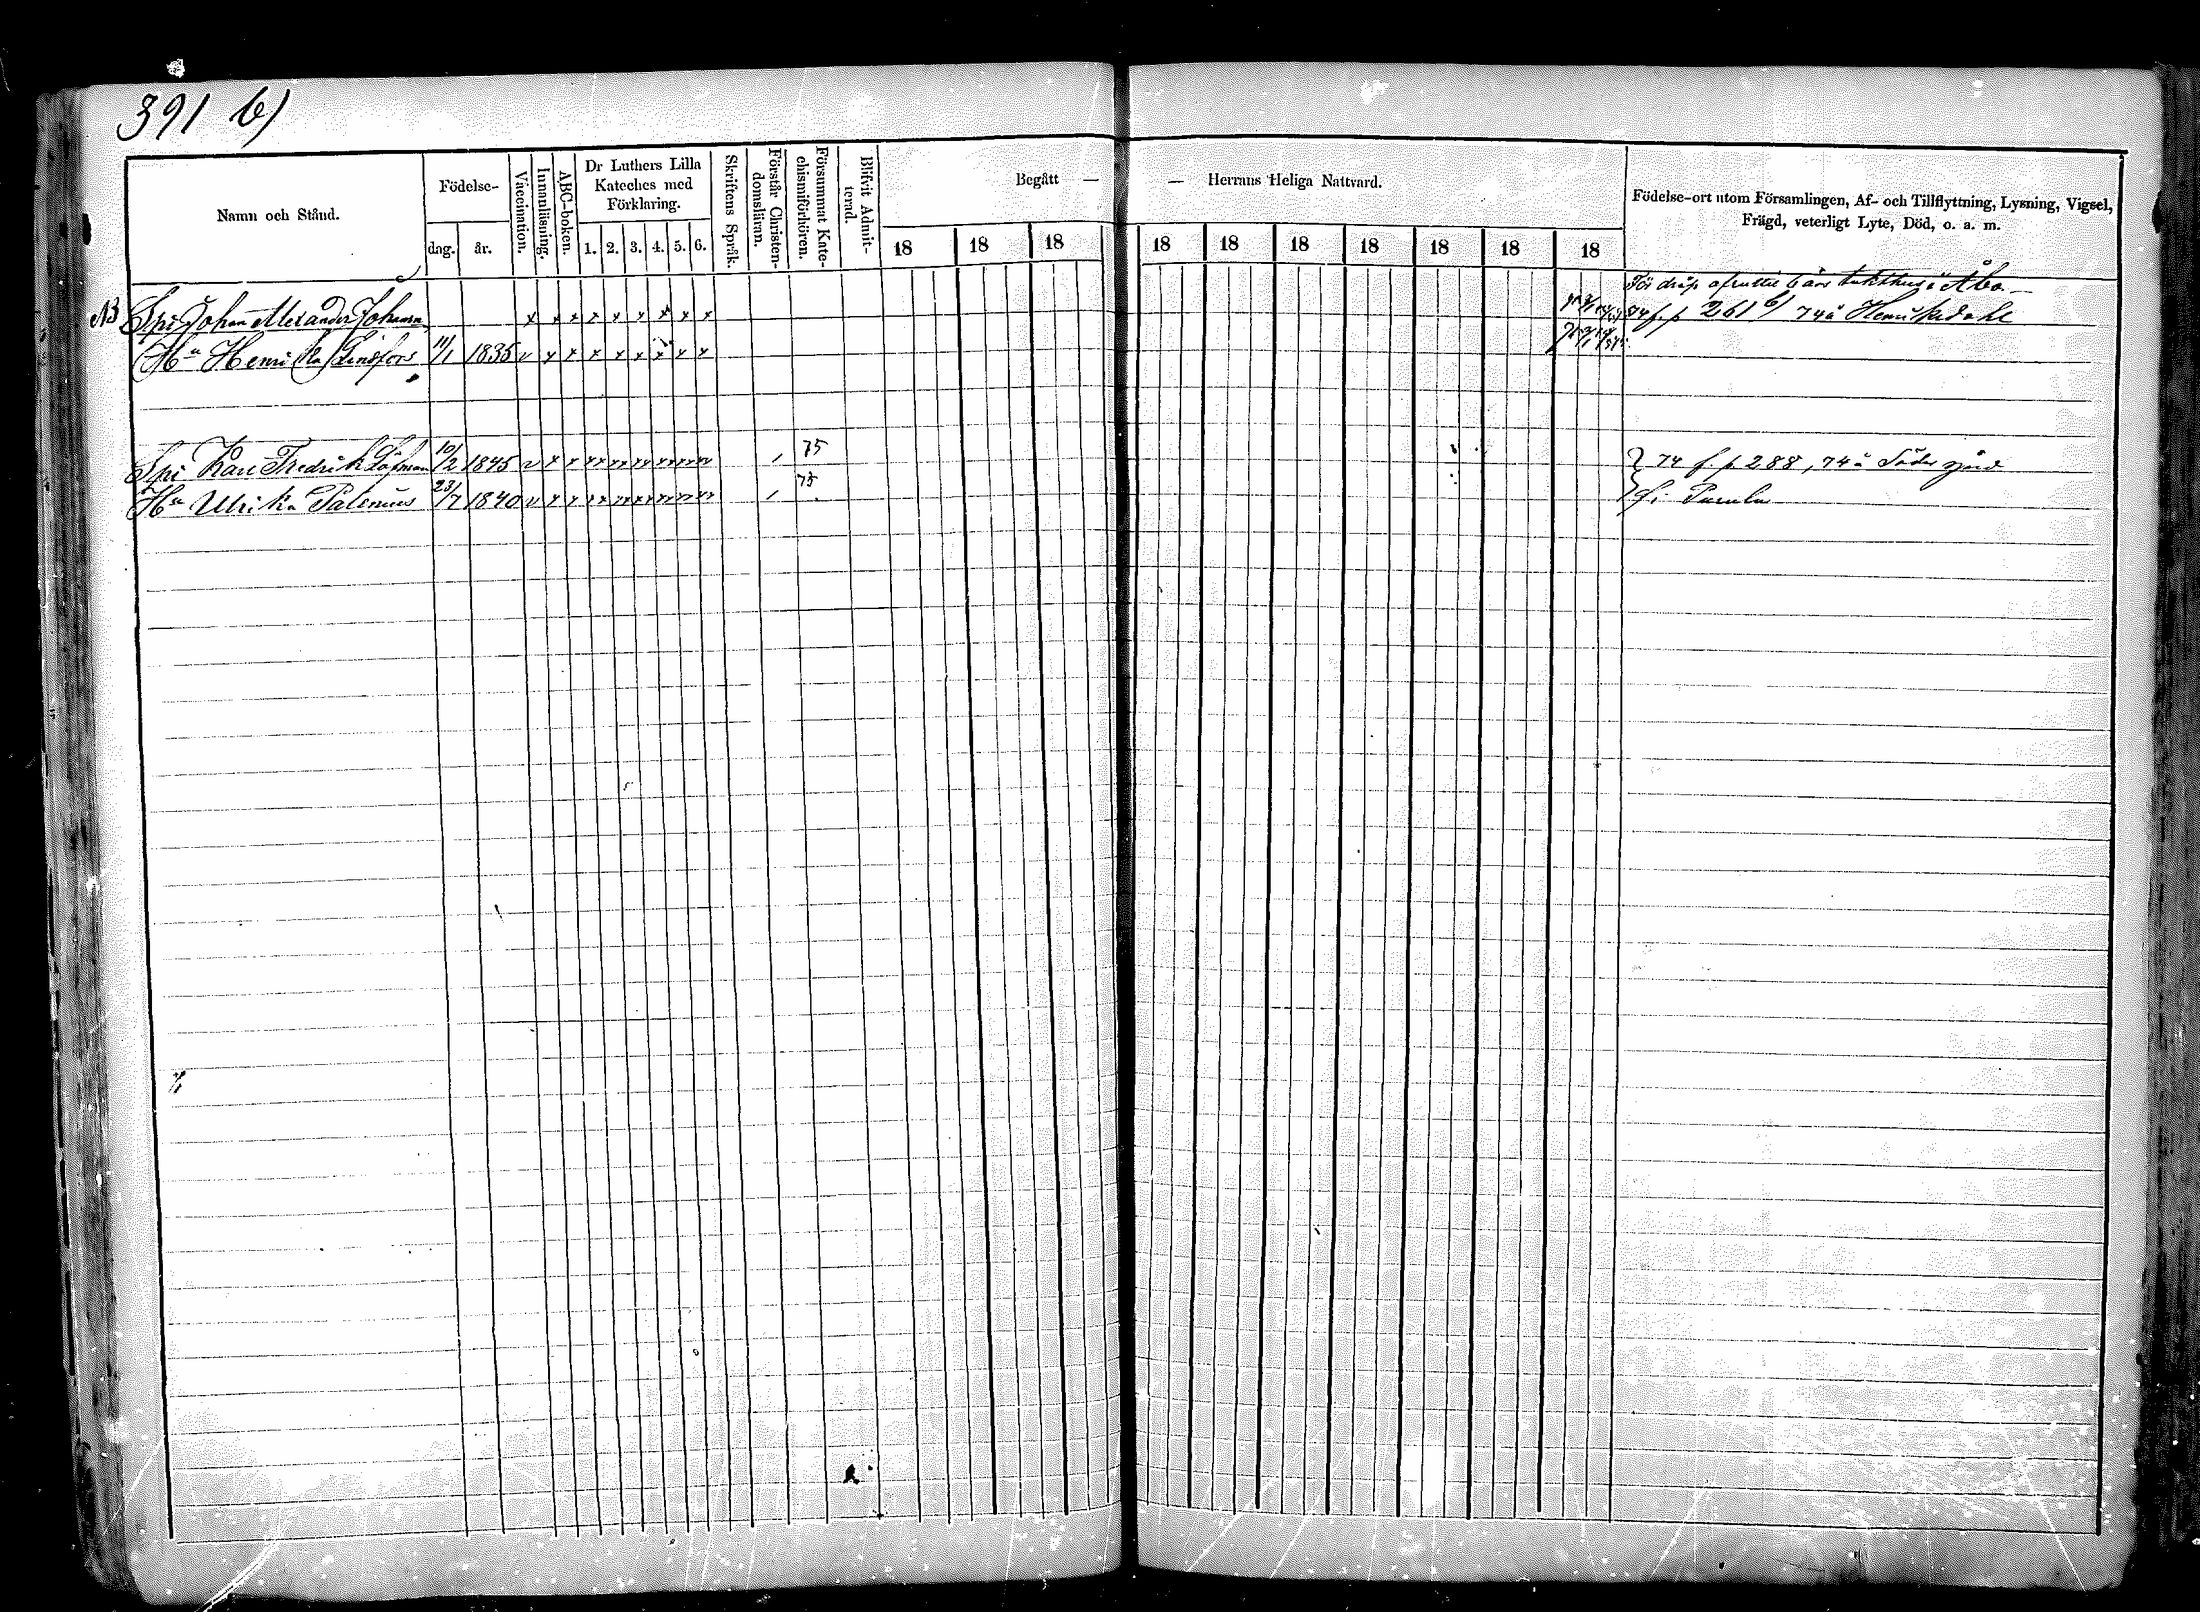 391 b)
Namn och Stånd.
Födelse-
dag. år.
Vaccination.
Innanläsning.
ABC-boken.
Dr Luthers Lilla
Kateches med
Förklaring.
1. 2. 3. 4. 5. 6.
Skriftens Språk.
Förstår Christen-
domsläran.
Försummat Kate-
chismiförhören.
Blifvit Admit-
terad.
Begått — — Herrans Heliga Nattvard.
18 18 18 18 18 18 18 18 18 18
Födelse-ort utom Församlingen, Af- och Tillflyttning, Lysning, Vigsel,
Frägd, veterligt Lyte, Död, o. a. m.
För dråp afsuttit 6 års tukthus i Åbo.
NB Spi Johan Alexander Johansson x x x x x x x x x 74 f. p 261 b/ 74 å Henriksdahl
Hu Henrika Lindfors 11/1 1835 v x x x x x x x x
Spi Karl Fredrik Löfman 10/2 1845 v x x xx xx xx xx xx xx / 75 74 f. p 288, 74 å Södergård
Hu Ulrika Palenius 23/7 1840 v x x xx xx xx xx xx xx / 75 fr. Pusula